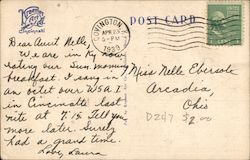 POST CARD
Cincinnati
COVINGTON, KY.
APR 23
5-PM
1939
Dear Aunt Nelle,
We are in Ky. now
eating our Sun. morning
breakfast. I sang in
an octet over WSAI
in Cincinnati last
nite at 7.15. Tell you
more later. Surely
had a grand time.
Love, Laura
Miss Nelle Ebersole
Arcadia,
Ohio
D247 $2.00